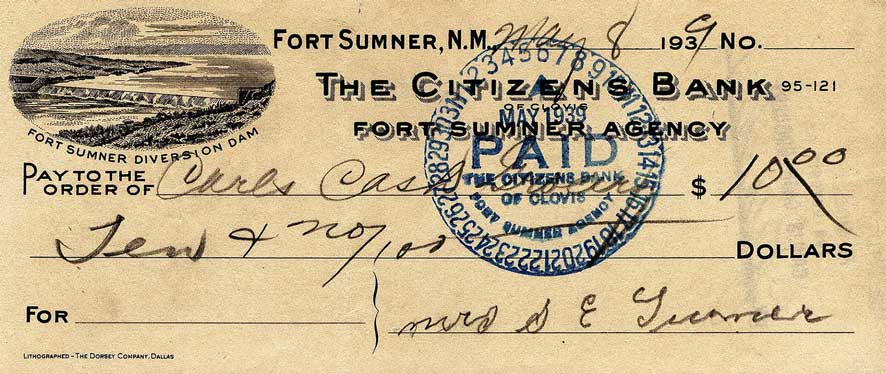 FORT SUMNER, N.M. May 8 1939 No.
THE CITIZENS BANK 95-121
OF CLOVIS
FORT SUMNER AGENCY
FORT SUMNER DIVERSION DAM
PAY TO THE ORDER OF Carls Cash $ 10 00
Ten & no/100 DOLLARS
FOR
Mrs S E Turner
LITHOGRAPHED - THE DORSEY COMPANY, DALLAS
MAY 1939
PAID
THE CITIZENS BANK
OF CLOVIS
FORT SUMNER AGENCY
1 2 3 4 5 6 7 8 9 10 11 12 13 14 15 16 17 18 19 20 21 22 23 24 25 26 27 28 29 30 31